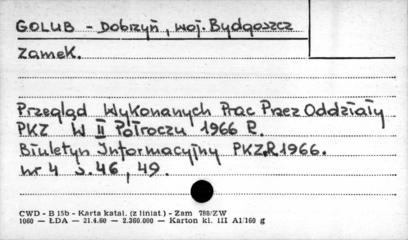 GOLUB - Dobrzyń, woj. Bydgoszcz
Zamek.
Przegląd Wykonanych Prac Przez Oddziały
PKZ W II Półroczu 1966 R.
Biuletyn Informacyjny PKZ,R.1966.
nr 4 s. 46, 49.
CWD - B 15b - Karta katal. (z liniat.) - Zam 788/ZW
1060 — ŁDA — 21.4.60 — 2.360.000 — Karton kl. III A1/160 g